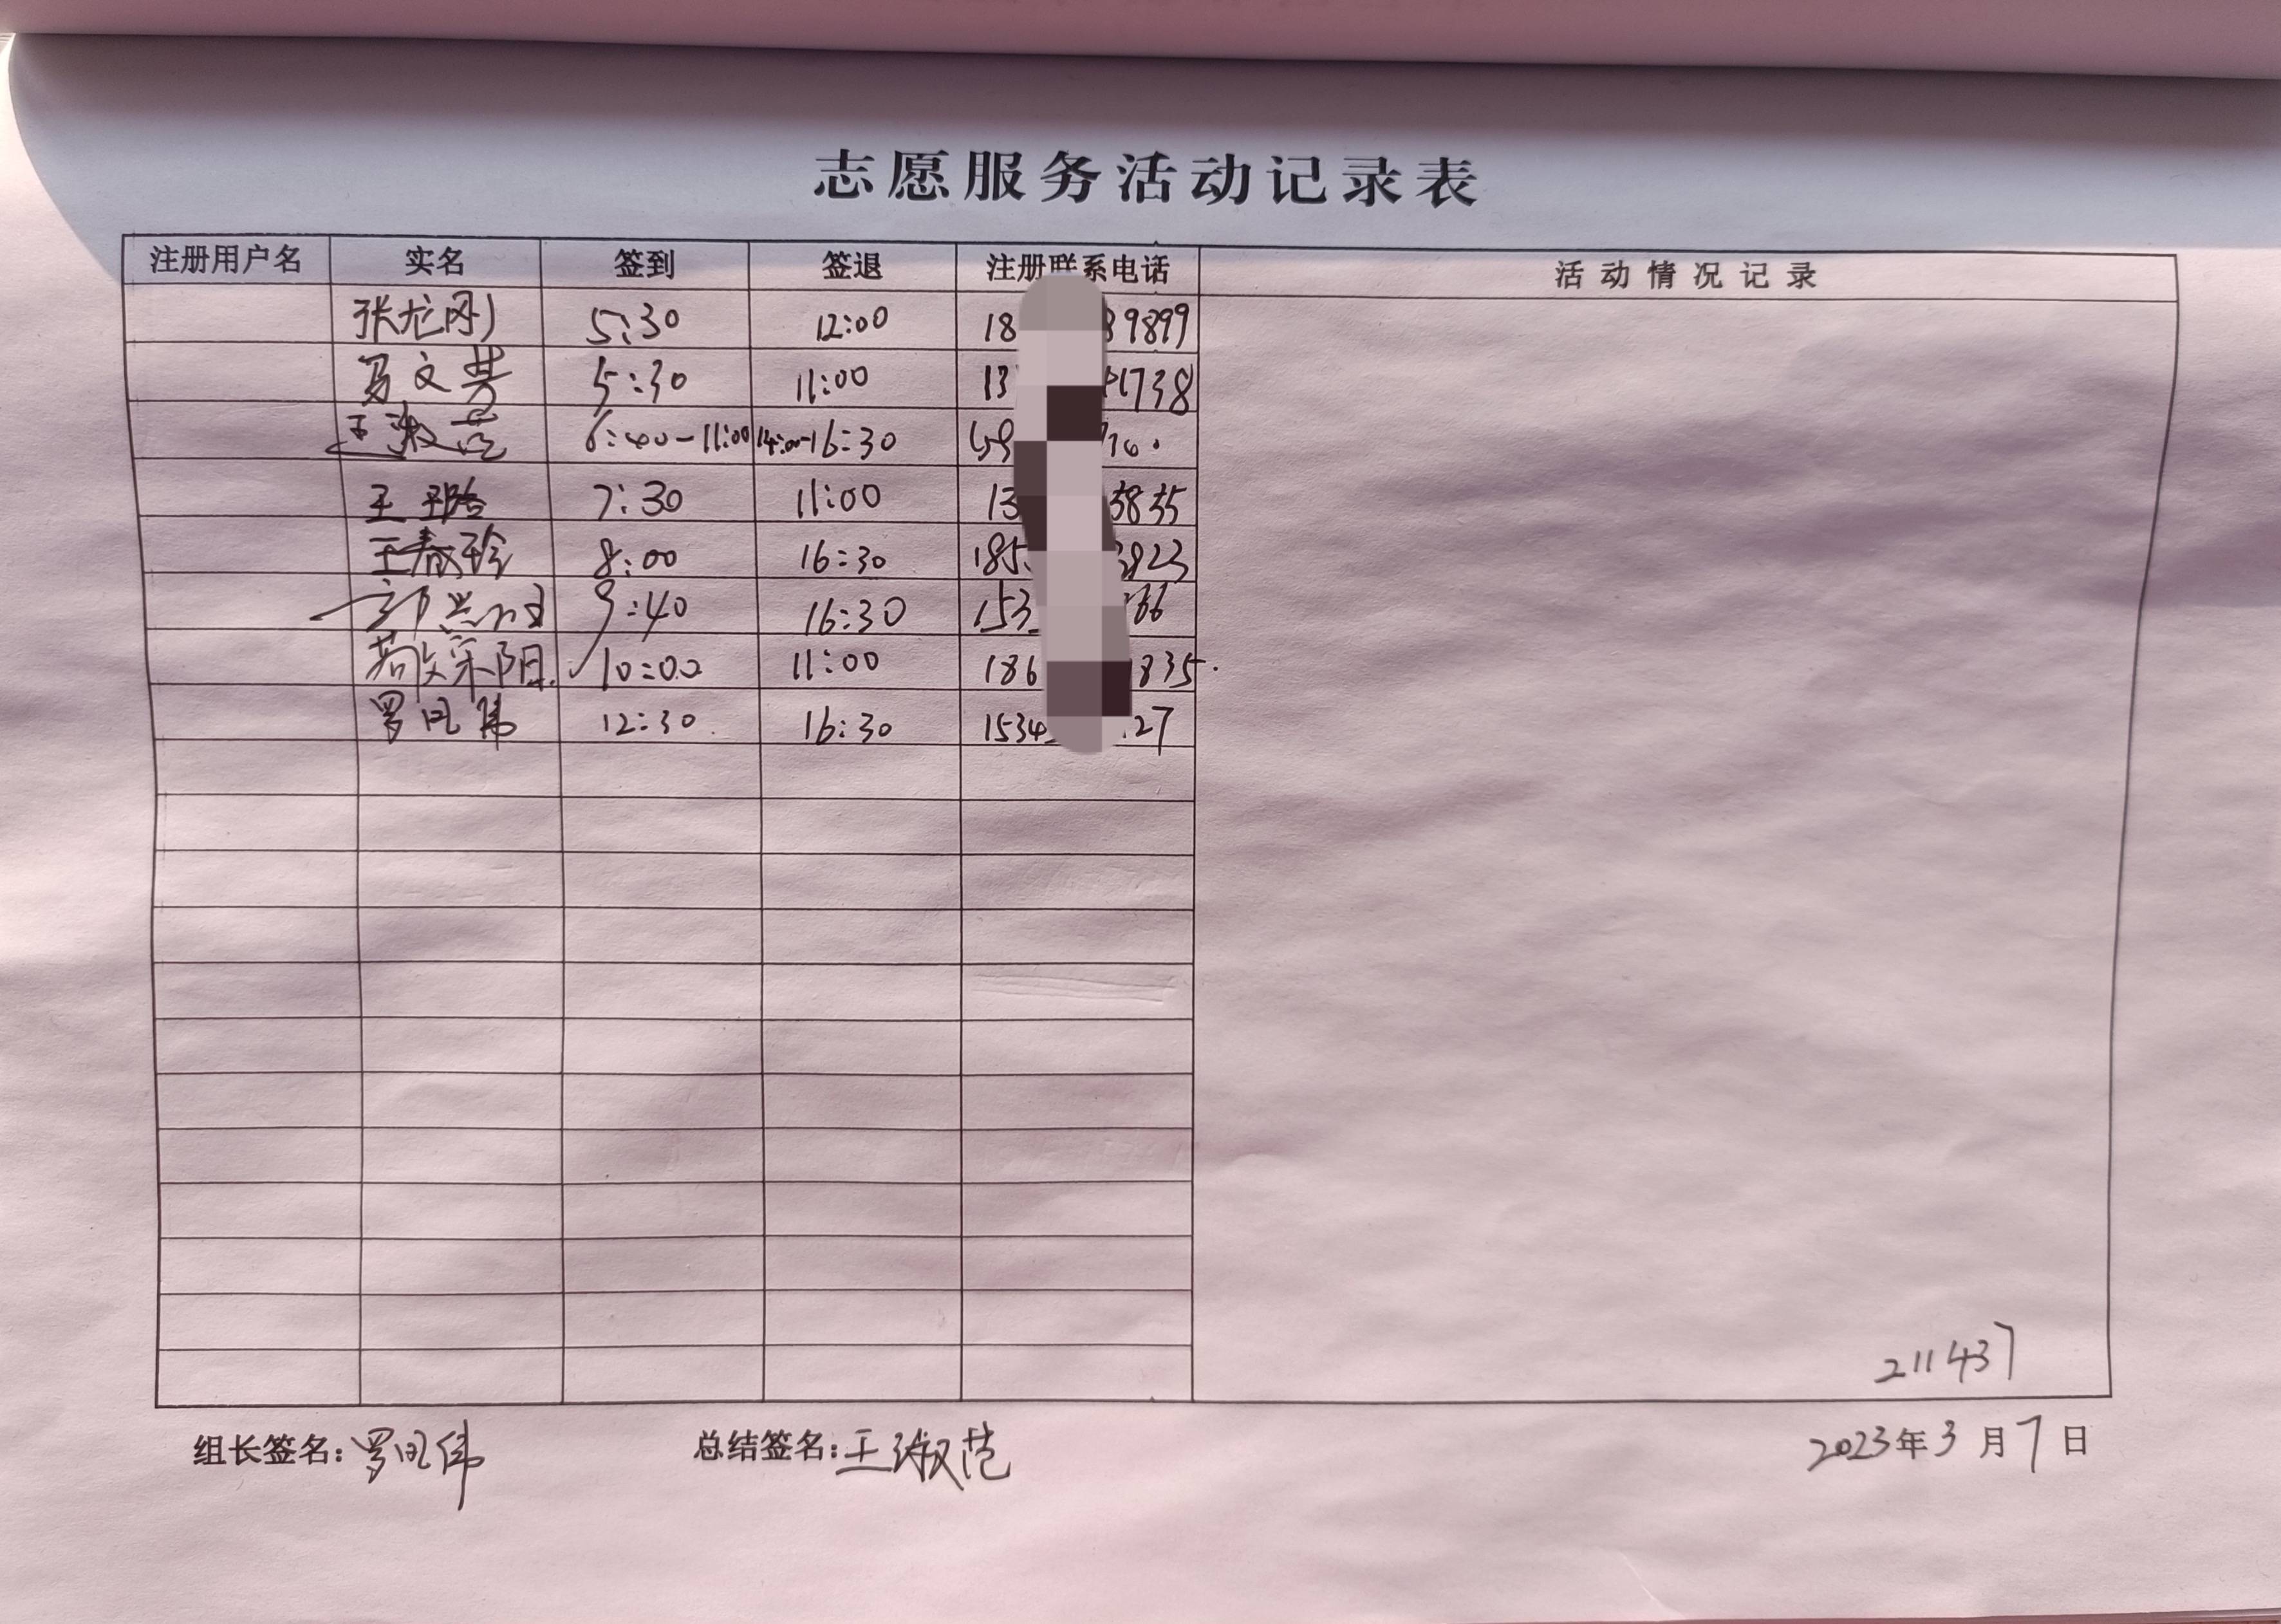 志愿服务活动记录表
注册用户名 实名 签到 签退 注册联系电话 活动情况记录
张龙刚 5:30 12:00 18 9899
马文芳 5:30 11:00 13 1738
王淑范 6:40-11:00 14:00-16:30
王 7:30 11:00 13 3835
王春珍 8:00 16:30 185 3823
9:40 16:30 153 66
10:00 11:00 186 1835.
罗凤伟 12:30 16:30 1534 27
211437
组长签名:罗凤伟 总结签名:王淑范 2023年3月7日